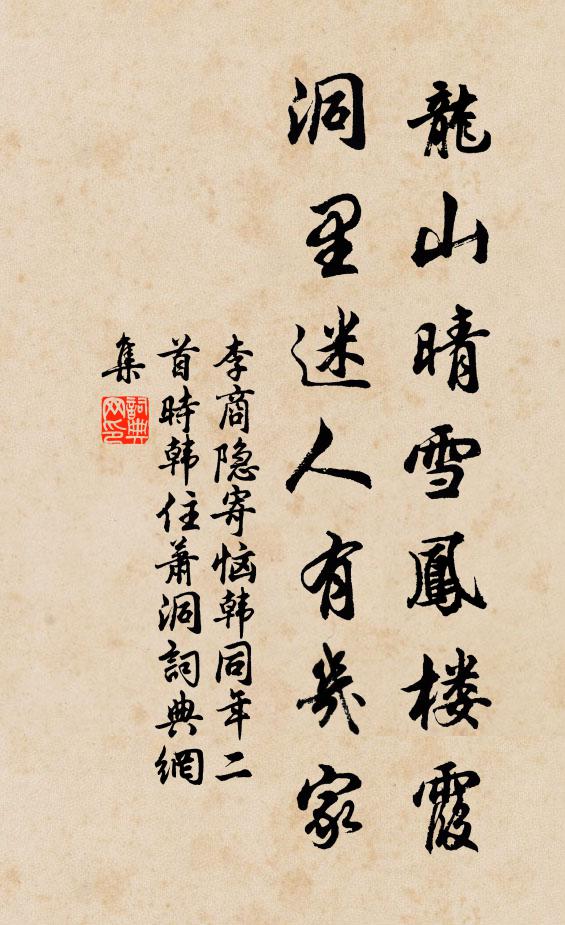 龍山晴雪鳳楼霞
洞里迷人有幾家
李商隐寄恼韩同年二
首時韩住蕭洞詞典網
集
詞典
网印